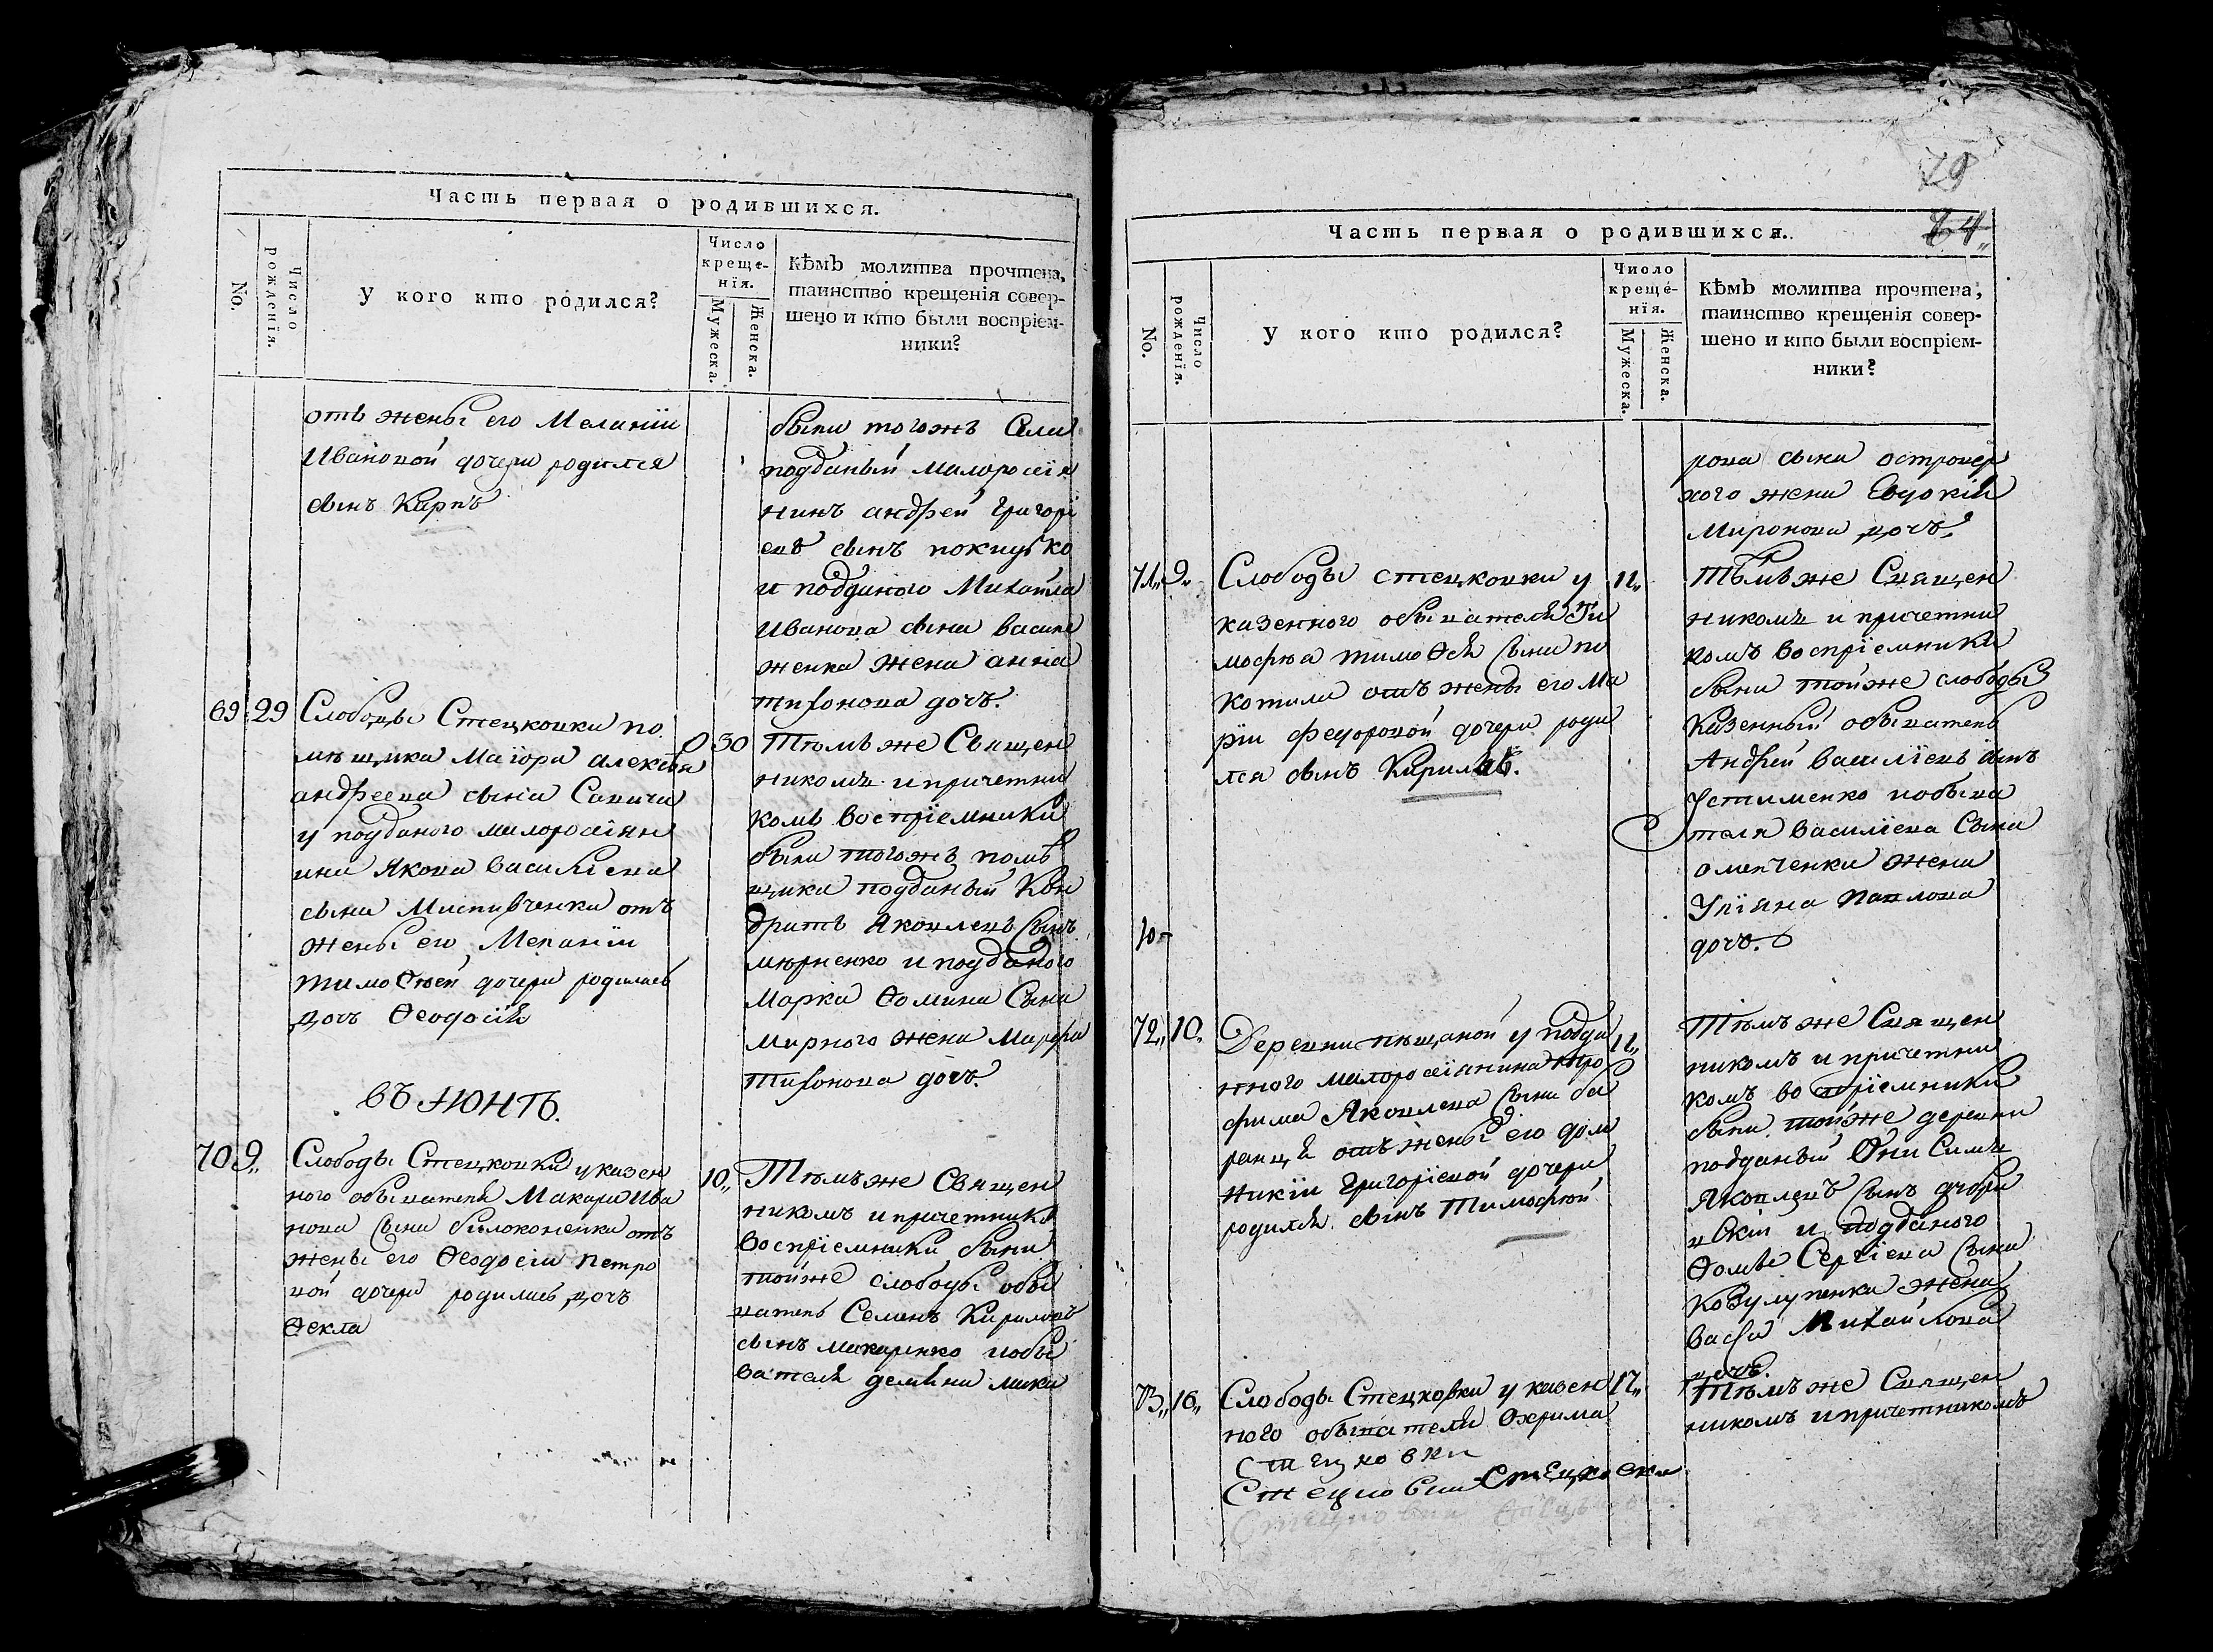 Часть первая о родившихся.
No.
Число рожденія.
У кого кто родился?
Число
креще-
нія.
Мужеска.
Женска.
Кѣмъ молитва прочтена,
таинство крещенія совер-
шено и кто были воспріем-
ники?
отъ жены его Меланіи
Ивановой дочери родился
сынъ Карпъ
были тогожъ Села
подданый малоросія
нинъ андрей Григорі
евъ сынъ
и подданого Михаила
Иванова сына васил
женка жена анна
тихонова дочъ.
69 29 Слободы Стецковки по
мѣщика Маіора алексѣя
андреева сына Савича
у подданого малоросіян
ина Якова васильева
сына отъ
жены его Меланіи
тимоѳѣей дочери родилась
дочъ Ѳеодосія
30 Тѣмъ же Священ
никомъ и причетни
комъ воспріемники
были тогожъ помѣ
щика подданый Кон
дратъ Яковлевъ Сынъ
мѣрненко и подданого
Марка Ѳомина Сына
Мирного жена Марфа
тихонова дочъ.
Въ Іюнѣ.
70 9„ Слободы Стецковки у казен
ного обывателя Макара Ива
нова Сына билоконенка отъ
жены его Ѳеодосіи петро
вой дочери родилась дочъ
Ѳекла
10„ Тѣмъ же Священ
никомъ и причетник
воспріемники были
тойже слободы обы
ватель Семенъ Кириловъ
сынъ макаренко иобы
вателя демяна мики
79
84„
Часть первая о родившихся.
No.
Число рожденія.
У кого кто родился?
Число
креще-
нія.
Мужеска.
Женска.
Кѣмъ молитва прочтена,
таинство крещенія совер-
шено и кто были воспріем-
ники?
рова сына островер
хого жена Евдокія
Миронова дочъ.
71„ 9„ Слободы стецковки у
казенного обывателя Ти
мофѣа тимоѳея Сына по
котила отъ жены его Ма
ріи федоровой дочери роди
лся сынъ Кирилъ.
11„ Тѣмъ же Священ
никомъ и причетни
комъ воспріемники
были тойже слободы
Казенный обыватель
Андрей василіевъ сынъ
Устименко иобыва
теля василіева Сына
омелченка жена
Уліяна павлова
дочъ.
10-
72„ 10„ Деревни пѣщаной у подда
нного малоросіянина тро
фима Яковлева Сына ба
ранця отъ жены его дом
никіи григоріевой дочери
родился сынъ Тимофѣй
11„ Тѣмъ же Священ
никомъ и причетни
комъ воспріемники
были тойже деревни
подданый Они Симъ
Яковлевъ Сынъ
и подданого
Ѳомы Сергіева Сына
Козулупенка жена
Васса Михайлова
дочъ.
73„ 16„ Слободы Стецковки у казен
ного обывателя Охрима
17„ Тѣмъ же Священ
никомъ и причетникомъ
Стецковки
Стецковки Стецковки
Стецковки